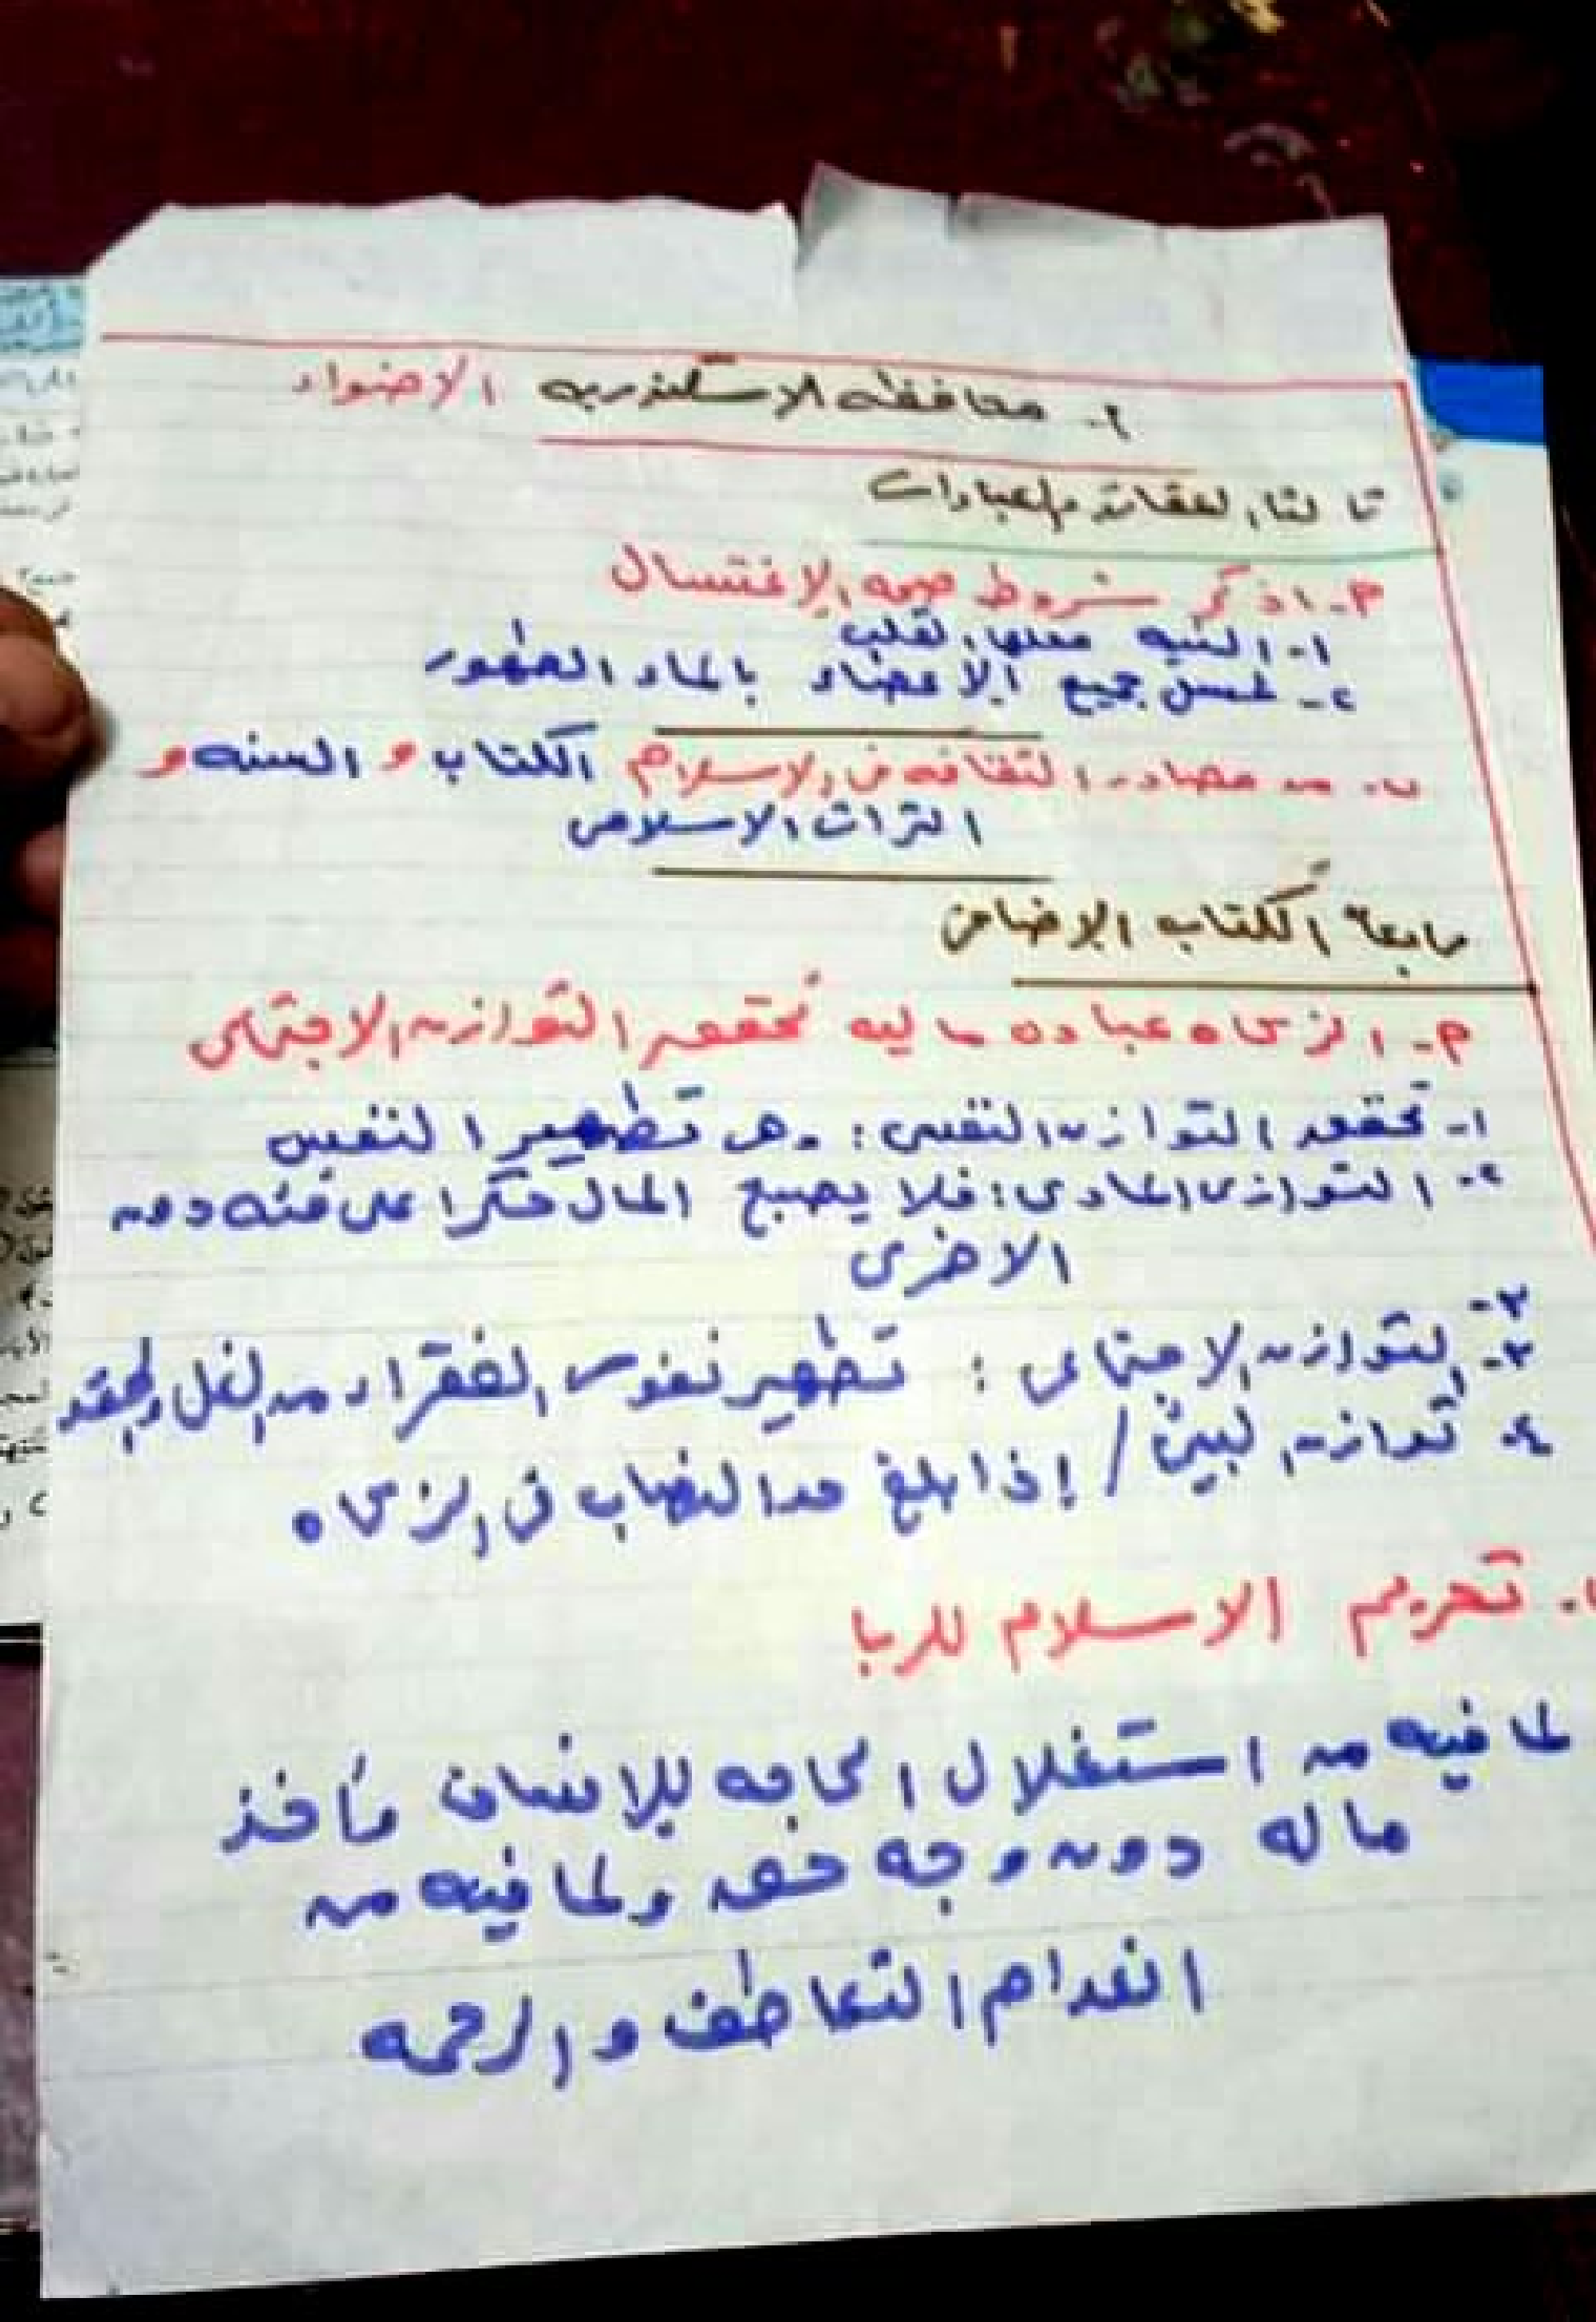 ٢- محافظه الاسكندريه الاضواء
ثالثا، العقائد والعبادات
٢- اذكر شروط صحه الاغتسال
١- النيه محلها القلب
٢- غسل جميع الاعضاء بالماء الطهور
ب- من مصادر الثقافه فى الاسلام الكتاب و السنه و
التراث الاسلامى
رابعا الكتاب الاضافى
٢- الزكاه عباده ماليه تحقق التوازن الاجتماعى
١- تحقق التوازن النفسى: هى تطهير النفس
٢- التوازن المادى: فلا يصبح المال حكرا على فئه دون
الاخرى
٣-
٣- التوازن الاجتماعى : تطهير نفوس الفقراء من الغل والحقد
٤- توازن البيئى / إذا بلغ حد النصاب فى الزكاه
تحريم الاسلام للربا
لما فيه من استغلال الحاجه للانسان فأخذ
ماله دون وجه حق ولما فيه من
انعدام التعاطف والرحمه